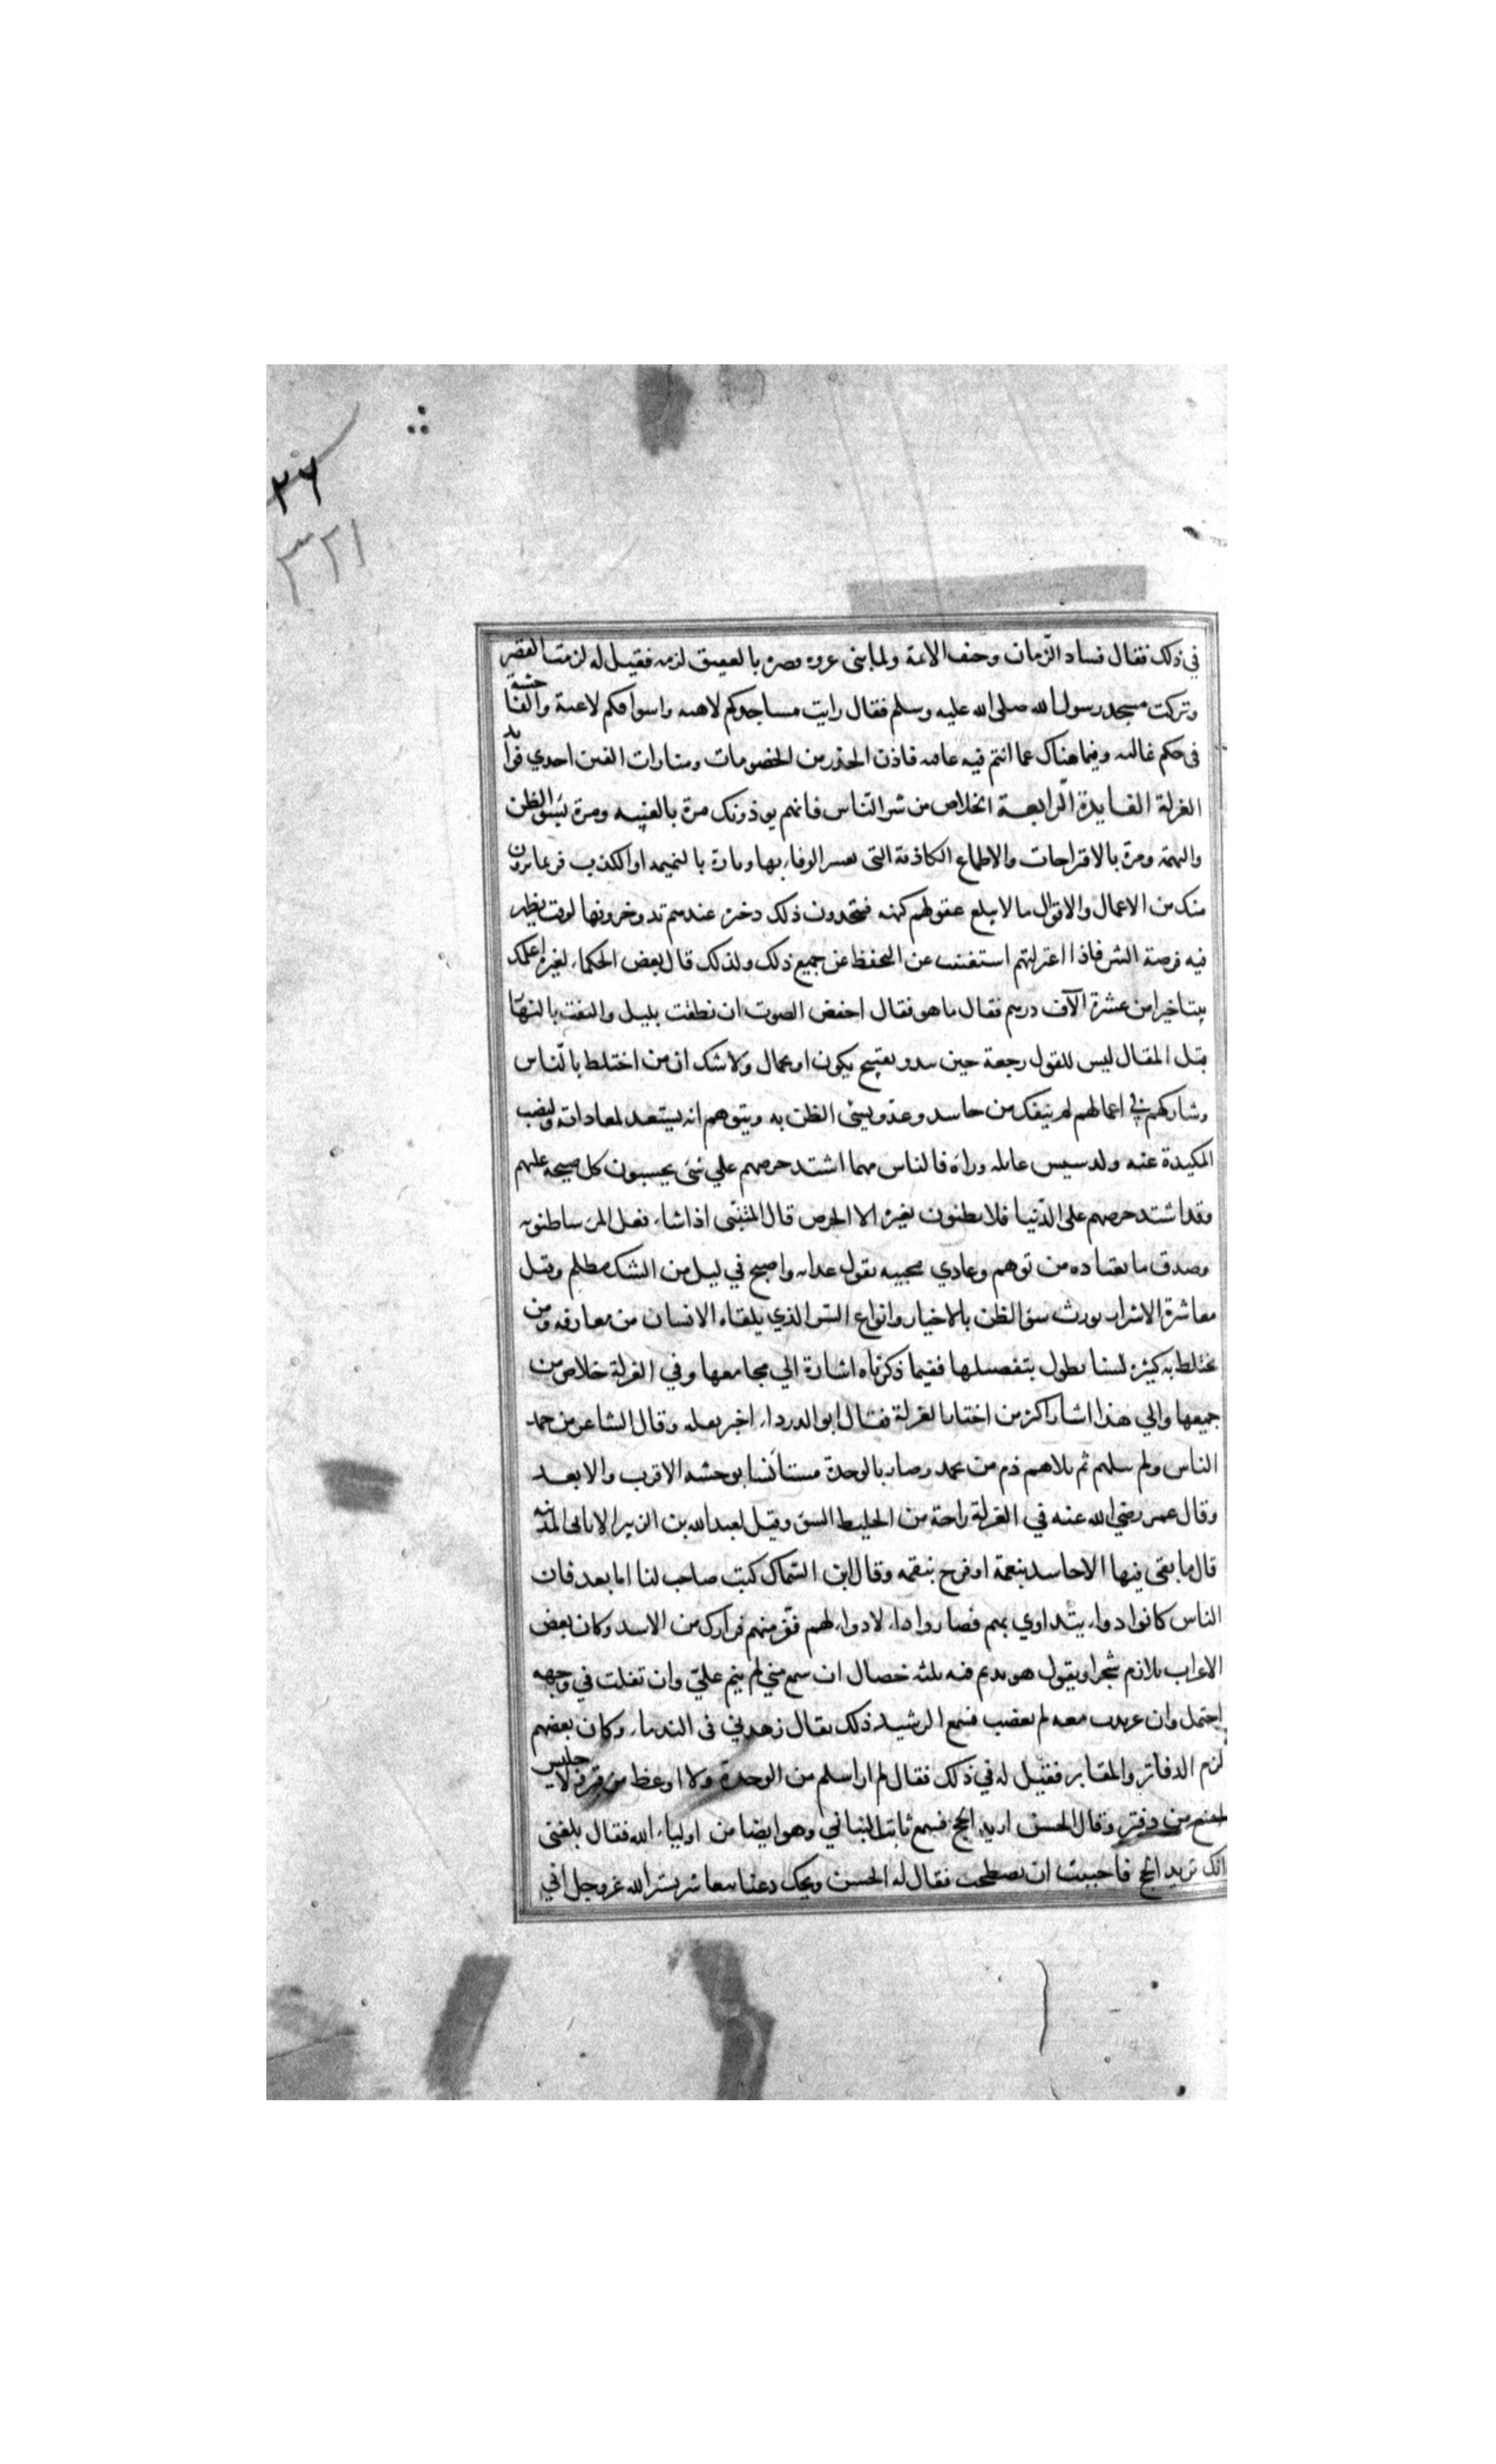 ٢٦
٣٢١
في ذلك فقال فساد الزمان وحيف الائمة ولما بنى عروه قصره بالعقيق لزمه فقيل له لزمت القصر
وتركت مسجد رسول الله صلى الله عليه وسلم فقال رايت مساجدكم لاهية واسواقكم لاغية والفاحشة
في فجاجكم عالية وفيما هناك عما انتم فيه عافية فاذن الحذر من الخصومات ومثارات الفتن احدي فوايد
العزلة الفايدة الرابعة الخلاص من شر الناس فانهم يوذونك مرة بالغيبه ومرة بسو الظن
والتهمة ومرة بالاقتراحات والاطماع الكاذبة التى يعسر الوفاء بها وتارة بالنميمه او الكذب فربما يرون
منك من الاعمال والاقوال ما لا يبلغ عقولهم كنهه فيتخذون ذلك ذخيرة عندهم يدخرونها لوقت يظهر
فيه فرصة الشر فاذا اعتزلتهم استغنيت عن التحفظ عن جميع ذلك ولذلك قال بعض الحكماء لغيره اعلمك
بيتا خيرا من عشرة الآف درهم فقال ما هو فقال اخفض الصوت ان نطقت بليل والتفت بالنهار
قبل المقال ليس للقول رجعة حين يبدو بقبيح يكون او بجمال ولا شك ان من اختلط بالناس
وشاركهم في اعمالهم لم ينفك من حاسد وعدو يسئ الظن به ويتوهم انه يستعد لمعاداته ونصب
المكيدة عنه وتدسيس غايله وراه فالناس مهما اشتد حرصهم علي شئ يحسبون كل صيحة عليهم
وقد اشتد حرصهم على الدنيا فلا يظنون بغيره الا الحرص قال المتنبى اذا ساء فعل المرء ساء ظنونه
وصدق ما يعتاده من توهم وعادي محبيه بقول عداته واصبح في ليل من الشك مظلم وقيل
معاشرة الاشرار يورث سوء الظن بالاخيار وانواع الشر الذي يلقاه الانسان من معارفه ومن
يختلط به كثيره لسنا نطول بتفصيلها ففيما ذكرناه اشارة الي مجامعها وفي العزلة خلاص من
جميعها والي هذا اشار اكثر من اختار العزلة فقال ابو الدرداء اخبر تقله وقال الشاعر من حمد
الناس ولم يبلهم ثم بلاهم ذم من يحمد وصار بالوحدة مستأنسا يوحشه الاقرب والابعد
وقال عمر رضي الله عنه في العزلة راحة من الخليط السوء وقيل لعبد الله بن الزبير الا تاتى المدينة
قال ما بقى فيها الا حاسد بنعمة او فرح بنقمه وقال ابن السماك كتب صاحب لنا اما بعد فان
الناس كانوا دواء يتداوي بهم فصاروا داء لا دواء لهم ففر منهم فرارك من الاسد وكان بعض
الاعراب يلازم شجرا ويقول هو نديم فيه ثلثه خصال ان سمع مني لم ينم علي وان تفلت في وجهه
احتمل وان عربدت معه لم يغضب فسمع الرشيد ذلك فقال زهدني في الندماء وكان بعضهم
لزم الدفاتر والمقابر فقيل له في ذلك فقال لم ار اسلم من الوحدة ولا اوعظ من قبر ولا جليس
امتع من دفتر وقال الحسن اريد الحج فسمع ثابت البناني وهو ايضا من اولياء الله فقال بلغنى
انك تريد الحج فاحببت ان نصطحب فقال له الحسن ويحك دعنا نتعاشر بستر الله عز وجل اني